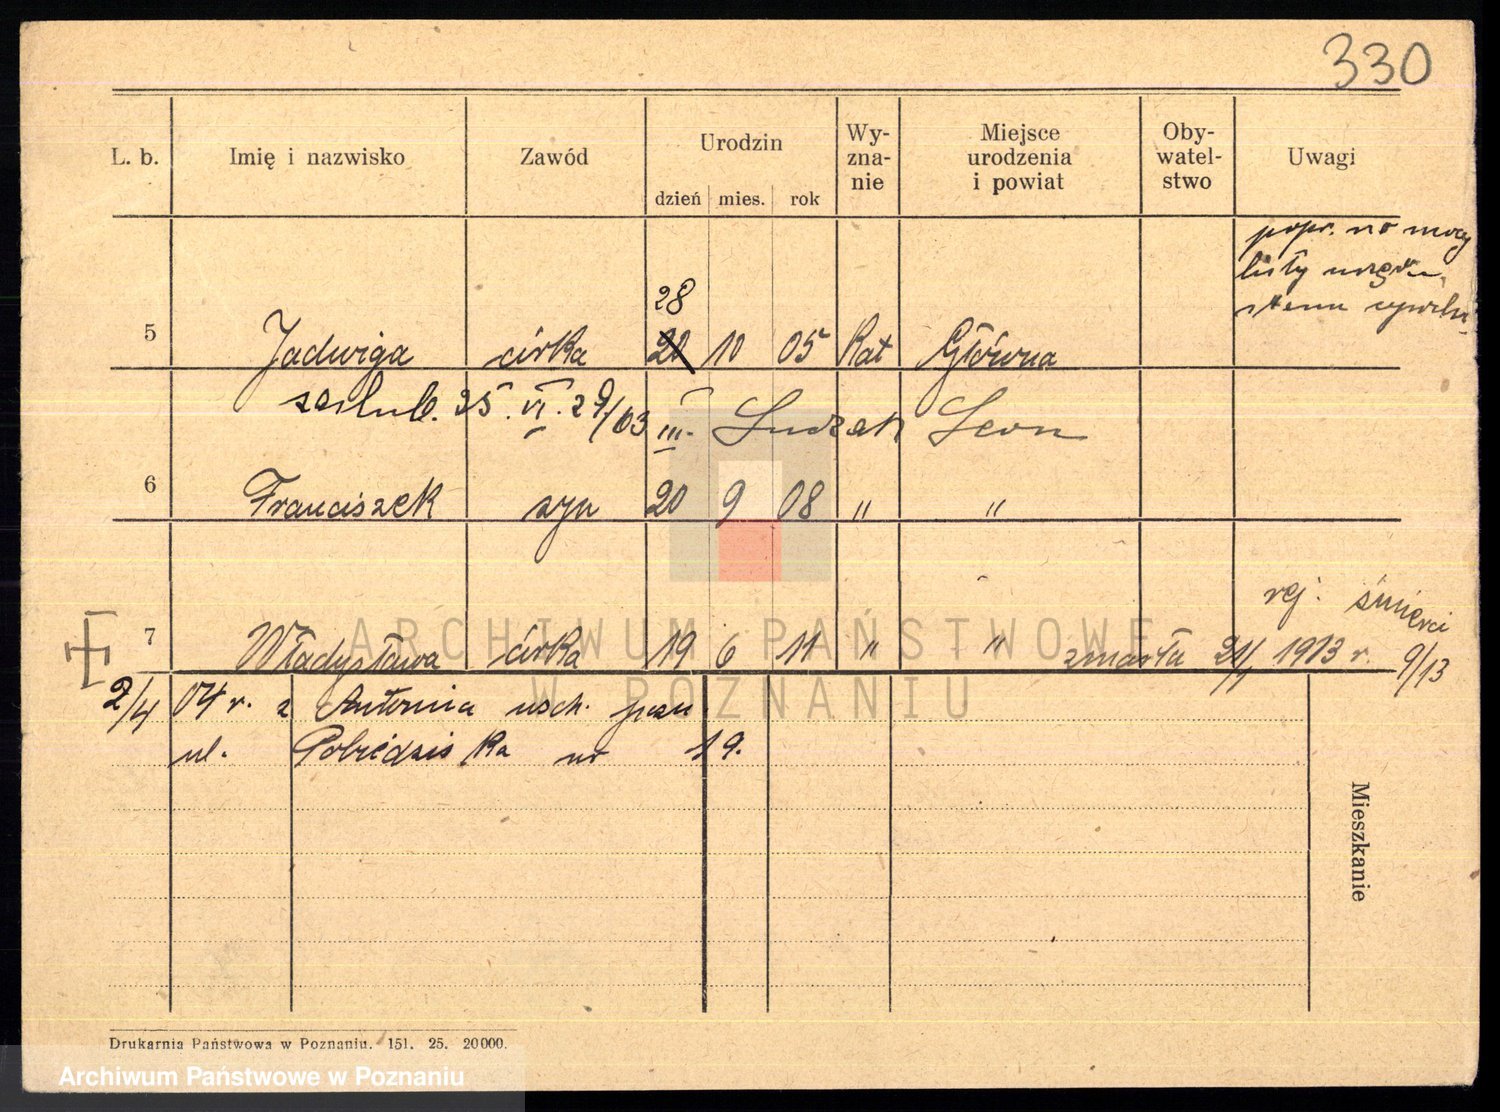 330
L. b. Imię i nazwisko Zawód Urodzin dzień mies. rok Wy-zna-nie Miejsce urodzenia i powiat Oby-watel-stwo Uwagi
popr. na mocy
listy urzędu
stanu cywiln.
28
5 Jadwiga córka 20 10 05 Kat Główna
zaślub. 25. VI. 29/63 III. Leon
6 Franciszek syn 20 9 08 " "
rej. śmierci
7 Władysława córka 19 6 11 " " zmarła 21/1 1913 r. 9/13
ARCHIWUM PAŃSTWOWE
W POZNANIU
2/4 04 r. z Antonina wsch. pozn.
ul. Pobiedziska nr 19.
Mieszkanie
Drukarnia Państwowa w Poznaniu. 151. 25. 20000.
Archiwum Państwowe w Poznaniu